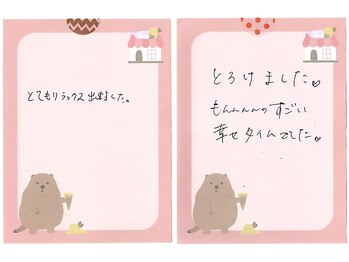 とてもリラックス出来ました。
とろけました♡
もんんんのすごい
幸せタイムでした♡